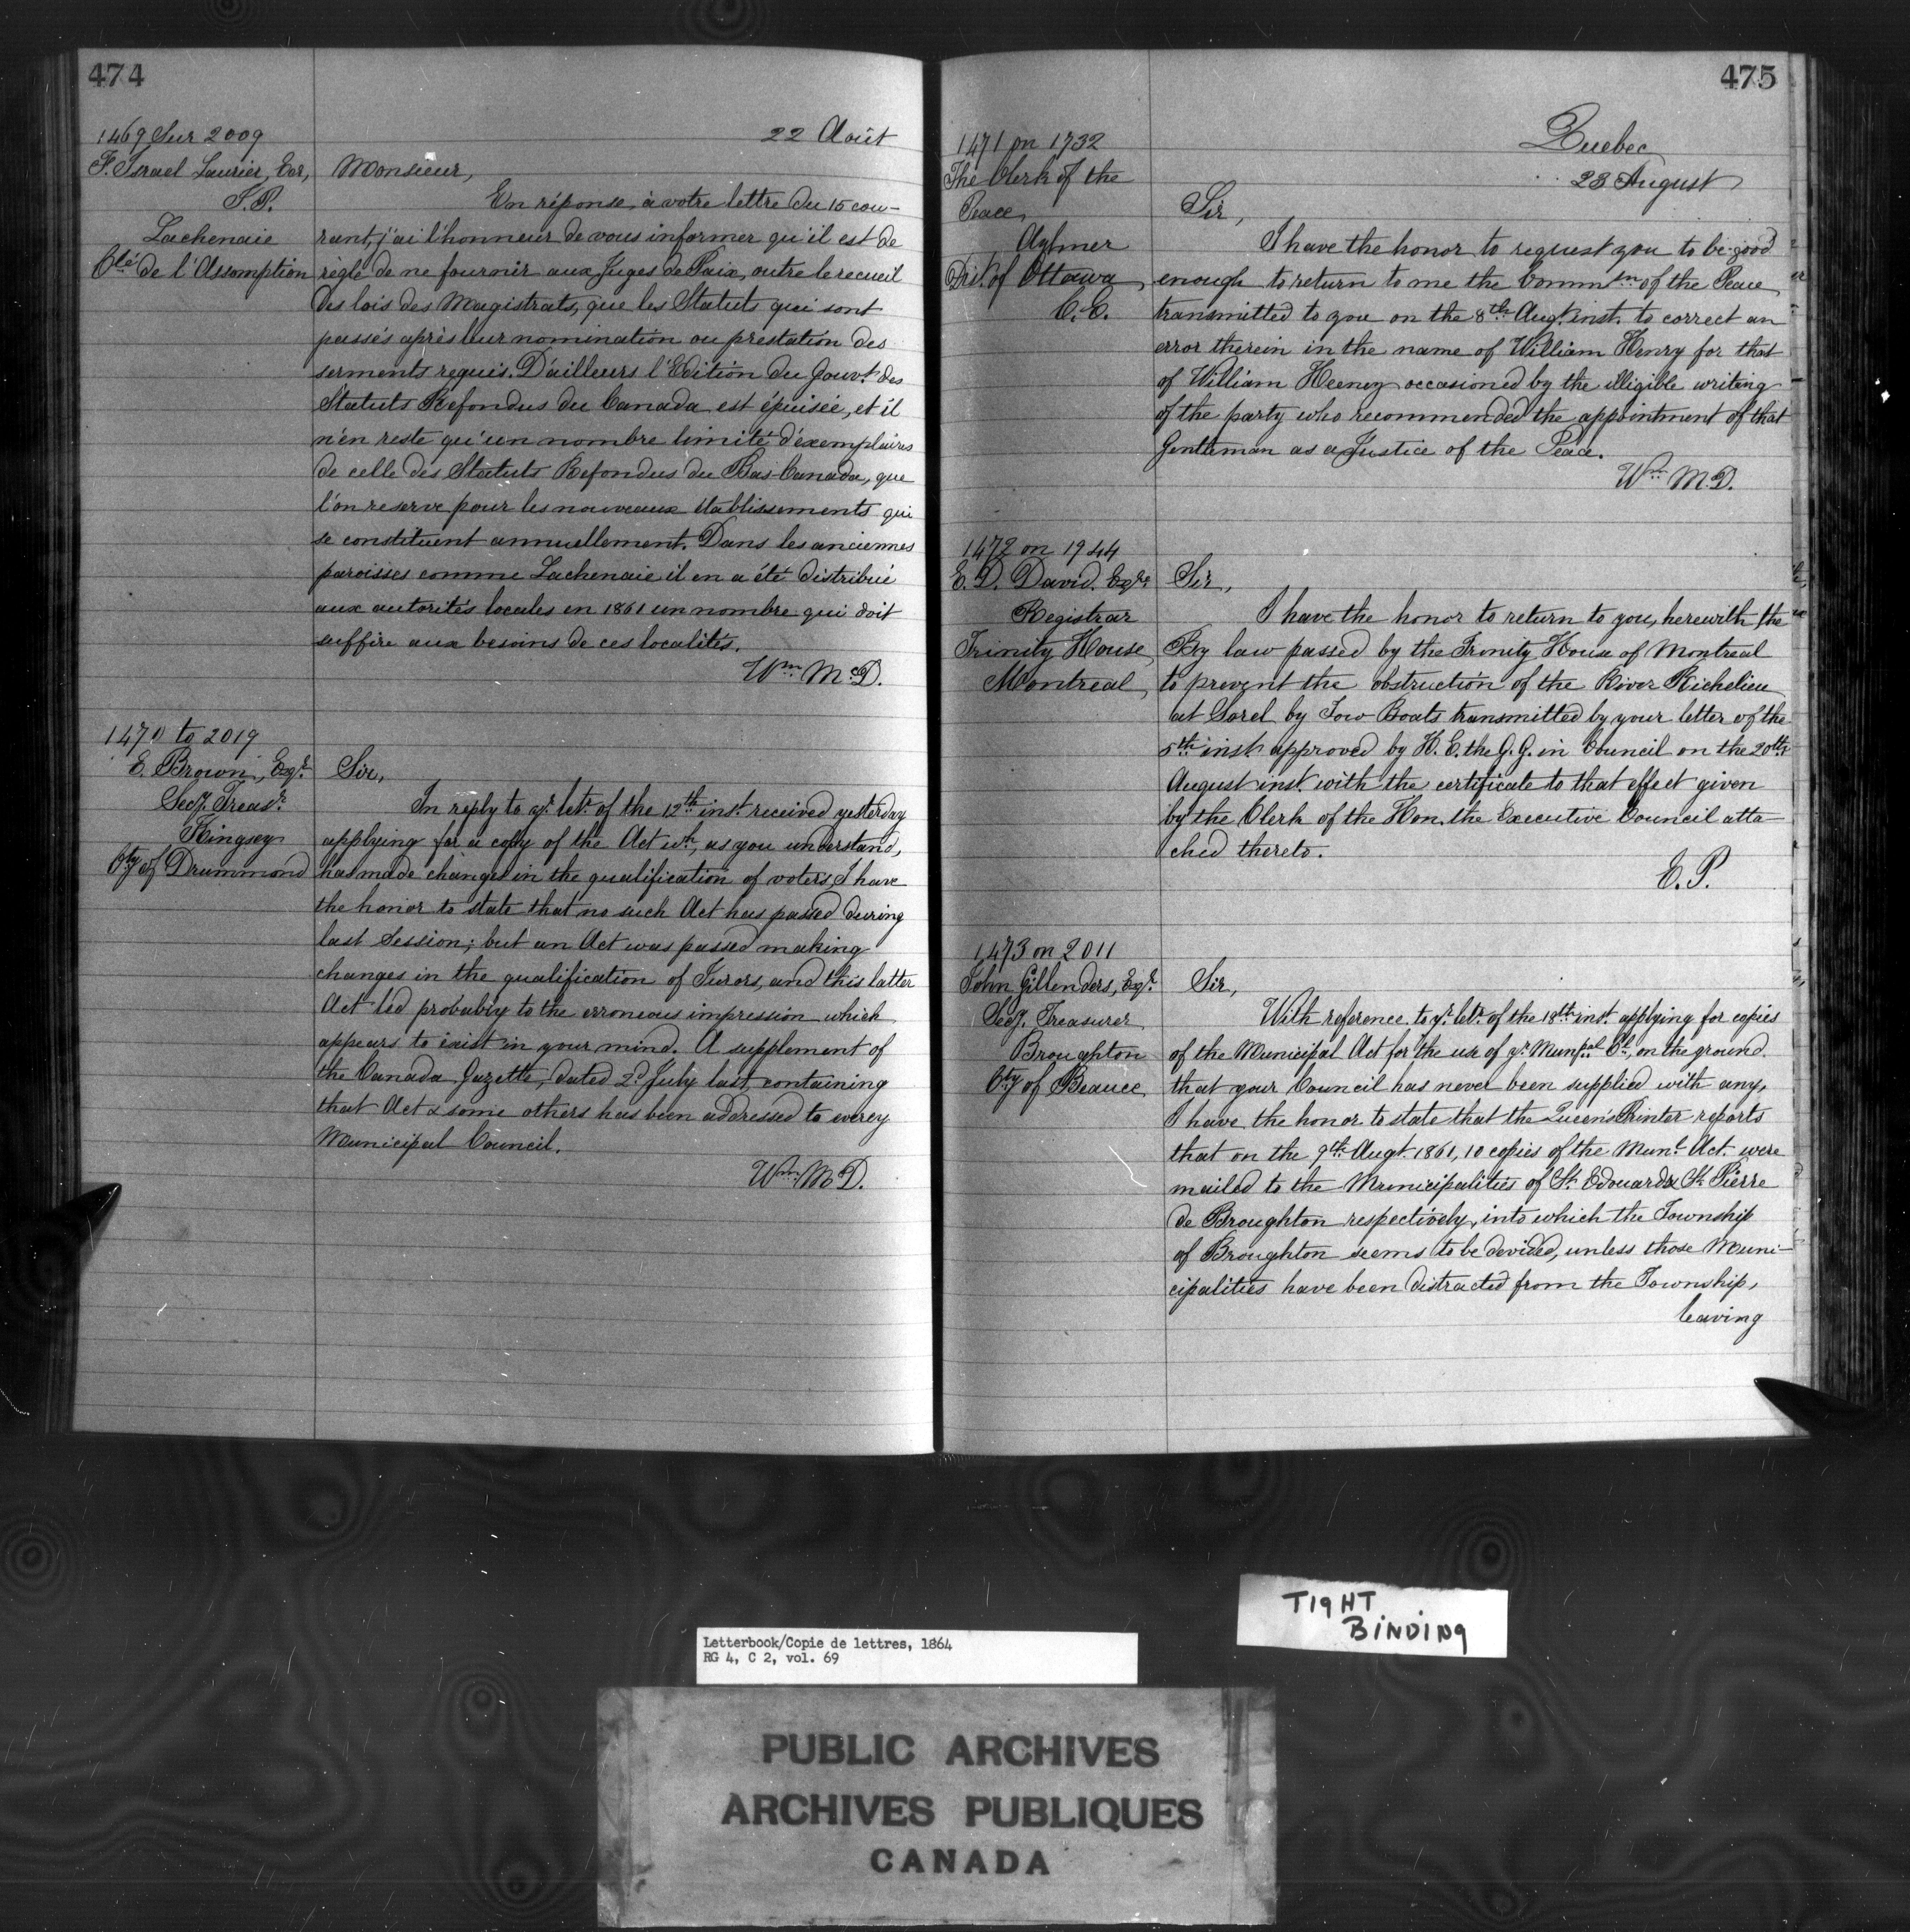 474
1469 Sur 2009
22 Août
F. Israel Laurier, Ecr,
J. P.
Lachenaie
Cté de l'Assomption
Monsieur,
En réponse à votre lettre du 15 cou-
rant, j'ai l'honneur de vous informer qu'il est de
règle de ne fournir aux Juges de Paix, outre le recueil
des lois des Magistrats, que les Statuts qui sont
passés après leur nomination ou prestation des
serments requis. D'ailleurs l'Edition du Gouvt. des
Statuts Refondus du Canada est épuisée, et il
n'en reste qu'un nombre limité d'exemplaires
de celle des Statuts Refondus du Bas-Canada, que
l'on reserve pour les nouveaux établissements qui
se constituent annuellement. Dans les anciennes
paroisses comme Lachenaie il en a été distribué
aux autorités locales en 1861 un nombre qui doit
suffire aux besoins de ces localités.
Wm McD.
1470 to 2019
E. Brown, Esqr.
Secy. Treasr.
Kingsey
Cty of Drummond
Sir,
In reply to yr. letr. of the 12th inst. received yesterday
applying for a copy of the Act wh., as you understand,
has made changes in the qualification of voters, I have
the honor to state that no such Act has passed during
last Session; but an Act was passed making
changes in the qualification of Jurors, and this latter
Act led probably to the erroneous impression which
appears to exist in your mind. A supplement of
the Canada Gazette, dated 2d July last, containing
that Act & some others has been addressed to every
Municipal Council.
Wm McD.
475
Quebec
23 August
1471 on 1732
The Clerk of the
Peace
Aylmer
Dist. of Ottawa
C. C.
Sir,
I have the honor to request you to be good
enough to return to me the Commsn of the Peace
transmitted to you on the 8th Augt. inst. to correct an
error therein in the name of William Henry for that
of William Heeney occasioned by the illigible writing
of the party who recommended the appointment of that
Gentleman as a Justice of the Peace.
Wm M.D.
1472 on 1944
E. D. David, Esqre
Registrar
Trinity House,
Montreal,
Sir,
I have the honor to return to you, herewith the
By law passed by the Trinity House of Montreal
to prevent the obstruction of the River Richelieu
at Sorel by Tow Boats transmitted by your letter of the
5th inst. approved by H. E. the G. G. in Council on the 20th
August inst. with the certificate to that effect given
by the Clerk of the Hon. the Executive Council atta-
ched thereto.
E. P.
1473 on 2011
John Gillenders, Esqr.
Secy. Treasurer
Broughton
Cty of Beauce
Sir,
With reference to yr. letr. of the 18th inst. applying for copies
of the Municipal Act for the use of yr. Munpal Cl, on the ground
that your Council has never been supplied with any,
I have the honor to state that the Queen's Printer reports
that on the 9th Augt. 1861, 10 copies of the Munl. Act. were
mailed to the Municipalities of St. Edouard & St. Pierre
de Broughton respectively, into which the Township
of Broughton seems to be devided, unless those Muni-
cipalities have been distracted from the Township,
leaving
TIGHT
BINDING
Letterbook/Copie de lettres, 1864
RG 4, C 2, vol. 69
PUBLIC ARCHIVES
ARCHIVES PUBLIQUES
CANADA